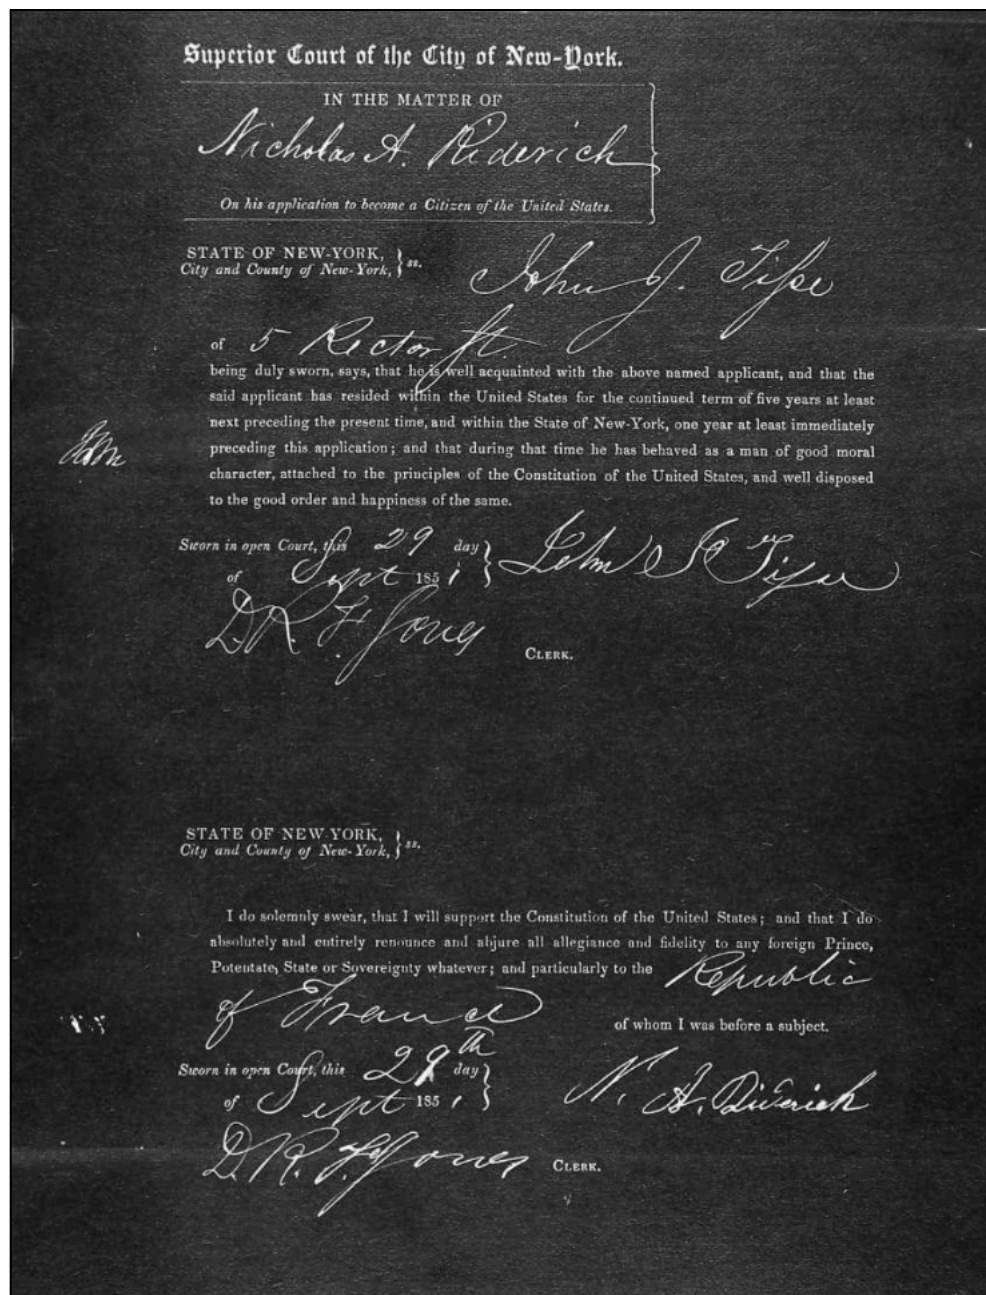 Superior Court of the City of New-York.
IN THE MATTER OF
Nicholas A. Riderich
On his application to become a Citizen of the United States.
STATE OF NEW-YORK,
City and County of New-York, } ss.
John J.
of 5 Rector St.
being duly sworn, says, that he is well acquainted with the above named applicant, and that the
said applicant has resided within the United States for the continued term of five years at least
next preceding the present time, and within the State of New-York, one year at least immediately
preceding this application; and that during that time he has behaved as a man of good moral
character, attached to the principles of the Constitution of the United States, and well disposed
to the good order and happiness of the same.
Sworn in open Court, this 29 day
of Sept 1851 } John
D. R. F. Jones
CLERK.
STATE OF NEW-YORK,
City and County of New-York, } ss.
I do solemnly swear, that I will support the Constitution of the United States; and that I do
absolutely and entirely renounce and abjure all allegiance and fidelity to any foreign Prince,
Potentate, State or Sovereignty whatever; and particularly to the Republic
of France of whom I was before a subject.
Sworn in open Court, this 29th day
of Sept 1851 } N. A. Riderich
D. R. F. Jones CLERK.